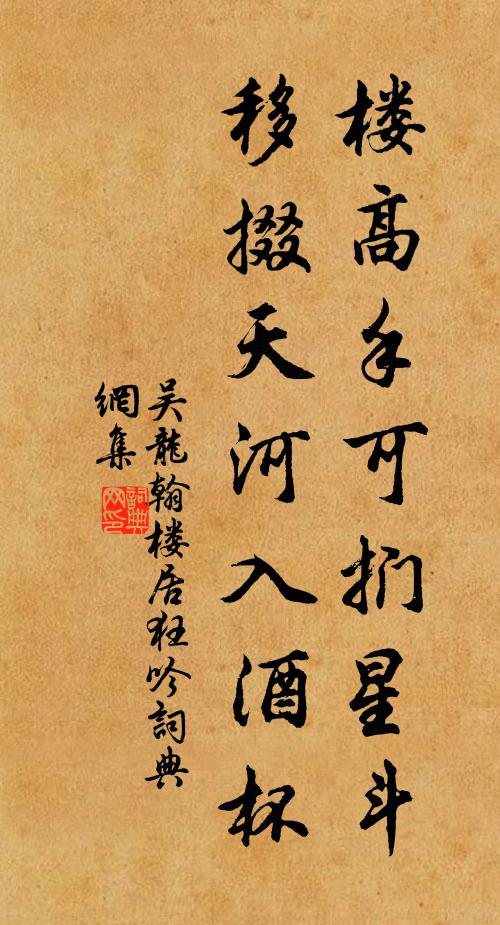 楼高手可扪星斗
移掇天河入酒杯
吴龍翰楼居狂吟詞典
網集
詞典
网印